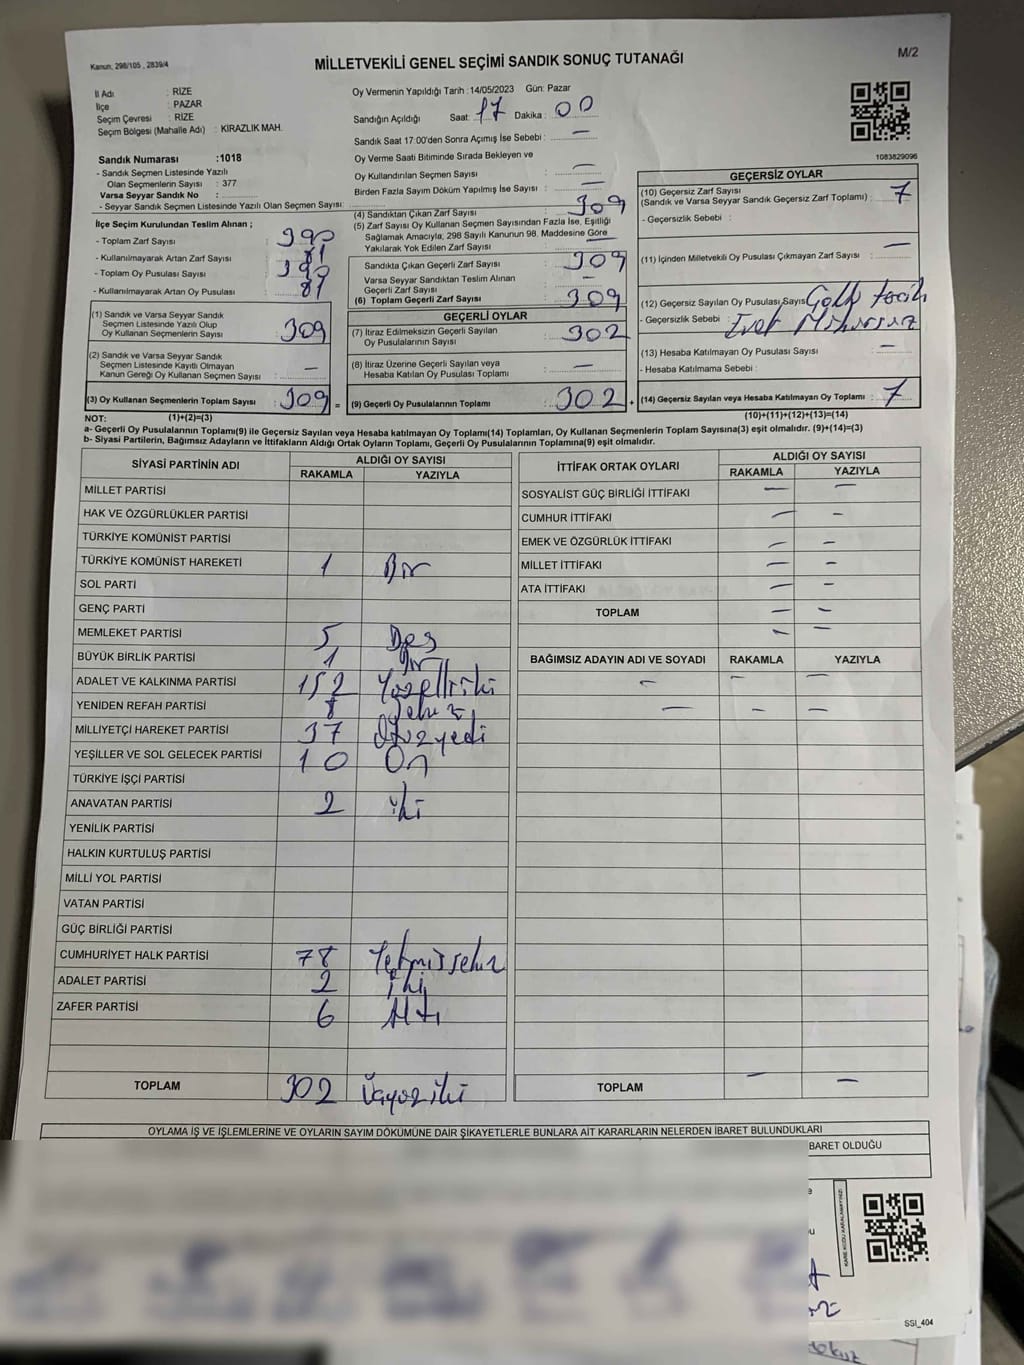 Kanun, 298/105 , 2839/4
MİLLETVEKİLİ GENEL SEÇİMİ SANDIK SONUÇ TUTANAĞI
M/2
İl Adı : RİZE
İlçe : PAZAR
Seçim Çevresi : RİZE
Seçim Bölgesi (Mahalle Adı) : KİRAZLIK MAH.
Sandık Numarası :1018
- Sandık Seçmen Listesinde Yazılı
Olan Seçmenlerin Sayısı : 377
Varsa Seyyar Sandık No :
- Seyyar Sandık Seçmen Listesinde Yazılı Olan Seçmen Sayısı:
Oy Vermenin Yapıldığı Tarih :14/05/2023 Gün: Pazar
Sandığın Açıldığı Saat: 17 Dakika : 00
Sandık Saat 17:00'den Sonra Açımış İse Sebebi : —
Oy Verme Saati Bitiminde Sırada Bekleyen ve
Oy Kullandırılan Seçmen Sayısı : —
Birden Fazla Sayım Döküm Yapılmış İse Sayısı : —
1083829096
İlçe Seçim Kurulundan Teslim Alınan ;
- Toplam Zarf Sayısı : 390
- Kullanılmayarak Artan Zarf Sayısı : 81
- Toplam Oy Pusulası Sayısı : 390
- Kullanılmayarak Artan Oy Pusulası : 81
(1) Sandık ve Varsa Seyyar Sandık
Seçmen Listesinde Yazılı Olup
Oy Kullanan Seçmenlerin Sayısı : 309
(2) Sandık ve Varsa Seyyar Sandık
Seçmen Listesinde Kayıtlı Olmayan
Kanun Gereği Oy Kullanan Seçmen Sayısı : —
(3) Oy Kullanan Seçmenlerin Toplam Sayısı : 309 =
(4) Sandıktan Çıkan Zarf Sayısı : 309
(5) Zarf Sayısı Oy Kullanan Seçmen Sayısından Fazla İse, Eşitliği
Sağlamak Amacıyla, 298 Sayılı Kanunun 98. Maddesine Göre
Yakılarak Yok Edilen Zarf Sayısı : —
Sandıkta Çıkan Geçerli Zarf Sayısı : 309
Varsa Seyyar Sandıktan Teslim Alınan
Geçerli Zarf Sayısı : —
(6) Toplam Geçerli Zarf Sayısı : 309
GEÇERLİ OYLAR
(7) İtiraz Edilmeksizin Geçerli Sayılan
Oy Pusulalarının Sayısı : 302
(8) İtiraz Üzerine Geçerli Sayılan veya
Hesaba Katılan Oy Pusulası Toplamı : —
(9) Geçerli Oy Pusulalarının Toplamı : 302 +
GEÇERSİZ OYLAR
(10) Geçersiz Zarf Sayısı
(Sandık ve Varsa Seyyar Sandık Geçersiz Zarf Toplamı) : 7
- Geçersizlik Sebebi :
(11) İçinden Milletvekili Oy Pusulası Çıkmayan Zarf Sayısı : —
(12) Geçersiz Sayılan Oy Pusulası Sayısı
- Geçersizlik Sebebi : Evet
(13) Hesaba Katılmayan Oy Pusulası Sayısı : —
- Hesaba Katılmama Sebebi :
(14) Geçersiz Sayılan veya Hesaba Katılmayan Oy Toplamı : 7
NOT: (1)+(2)=(3) (10)+(11)+(12)+(13)=(14)
a- Geçerli Oy Pusulalarının Toplamı(9) ile Geçersiz Sayılan veya Hesaba katılmayan Oy Toplamı(14) Toplamları, Oy Kullanan Seçmenlerin Toplam Sayısına(3) eşit olmalıdır. (9)+(14)=(3)
b- Siyasi Partilerin, Bağımsız Adayların ve İttifakların Aldığı Ortak Oyların Toplamı, Geçerli Oy Pusulalarının Toplamına(9) eşit olmalıdır.
SİYASİ PARTİNİN ADI ALDIĞI OY SAYISI
RAKAMLA YAZIYLA
MİLLET PARTİSİ
HAK VE ÖZGÜRLÜKLER PARTİSİ
TÜRKİYE KOMÜNİST PARTİSİ
TÜRKİYE KOMÜNİST HAREKETİ 1 Bir
SOL PARTİ
GENÇ PARTİ
MEMLEKET PARTİSİ 5 Beş
BÜYÜK BİRLİK PARTİSİ 1 Bir
ADALET VE KALKINMA PARTİSİ 152 Yüzelliiki
YENİDEN REFAH PARTİSİ 8 Sekiz
MİLLİYETÇİ HAREKET PARTİSİ 37 Otuzyedi
YEŞİLLER VE SOL GELECEK PARTİSİ 10 On
TÜRKİYE İŞÇİ PARTİSİ
ANAVATAN PARTİSİ 2 iki
YENİLİK PARTİSİ
HALKIN KURTULUŞ PARTİSİ
MİLLİ YOL PARTİSİ
VATAN PARTİSİ
GÜÇ BİRLİĞİ PARTİSİ
CUMHURİYET HALK PARTİSİ 78 Yetmişsekiz
ADALET PARTİSİ 2 İki
ZAFER PARTİSİ 6 Altı
TOPLAM 302 Üçyüziki
İTTİFAK ORTAK OYLARI ALDIĞI OY SAYISI
RAKAMLA YAZIYLA
SOSYALİST GÜÇ BİRLİĞİ İTTİFAKI — —
CUMHUR İTTİFAKI — —
EMEK VE ÖZGÜRLÜK İTTİFAKI — —
MİLLET İTTİFAKI — —
ATA İTTİFAKI — —
TOPLAM — —
— —
BAĞIMSIZ ADAYIN ADI VE SOYADI RAKAMLA YAZIYLA
— — —
— — —
TOPLAM — —
OYLAMA İŞ VE İŞLEMLERİNE VE OYLARIN SAYIM DÖKÜMÜNE DAİR ŞİKAYETLERLE BUNLARA AİT KARARLARIN NELERDEN İBARET BULUNDUKLARI
BARET OLDUĞU
KARE KODU KARALAMAYINIZ!
SSİ_404
dokuz